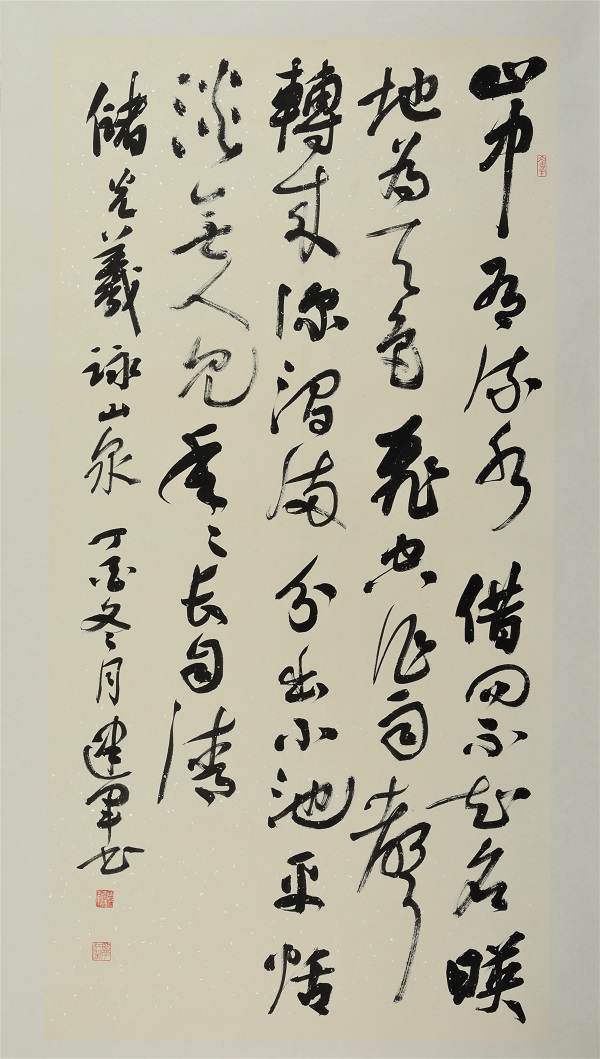 山中有流水借問不知名暎
地為天色飛空作雨聲
轉來深澗滿分出小池平恬
淡無人見年〻長自清
儲光羲詠山泉丁酉冬月建軍书